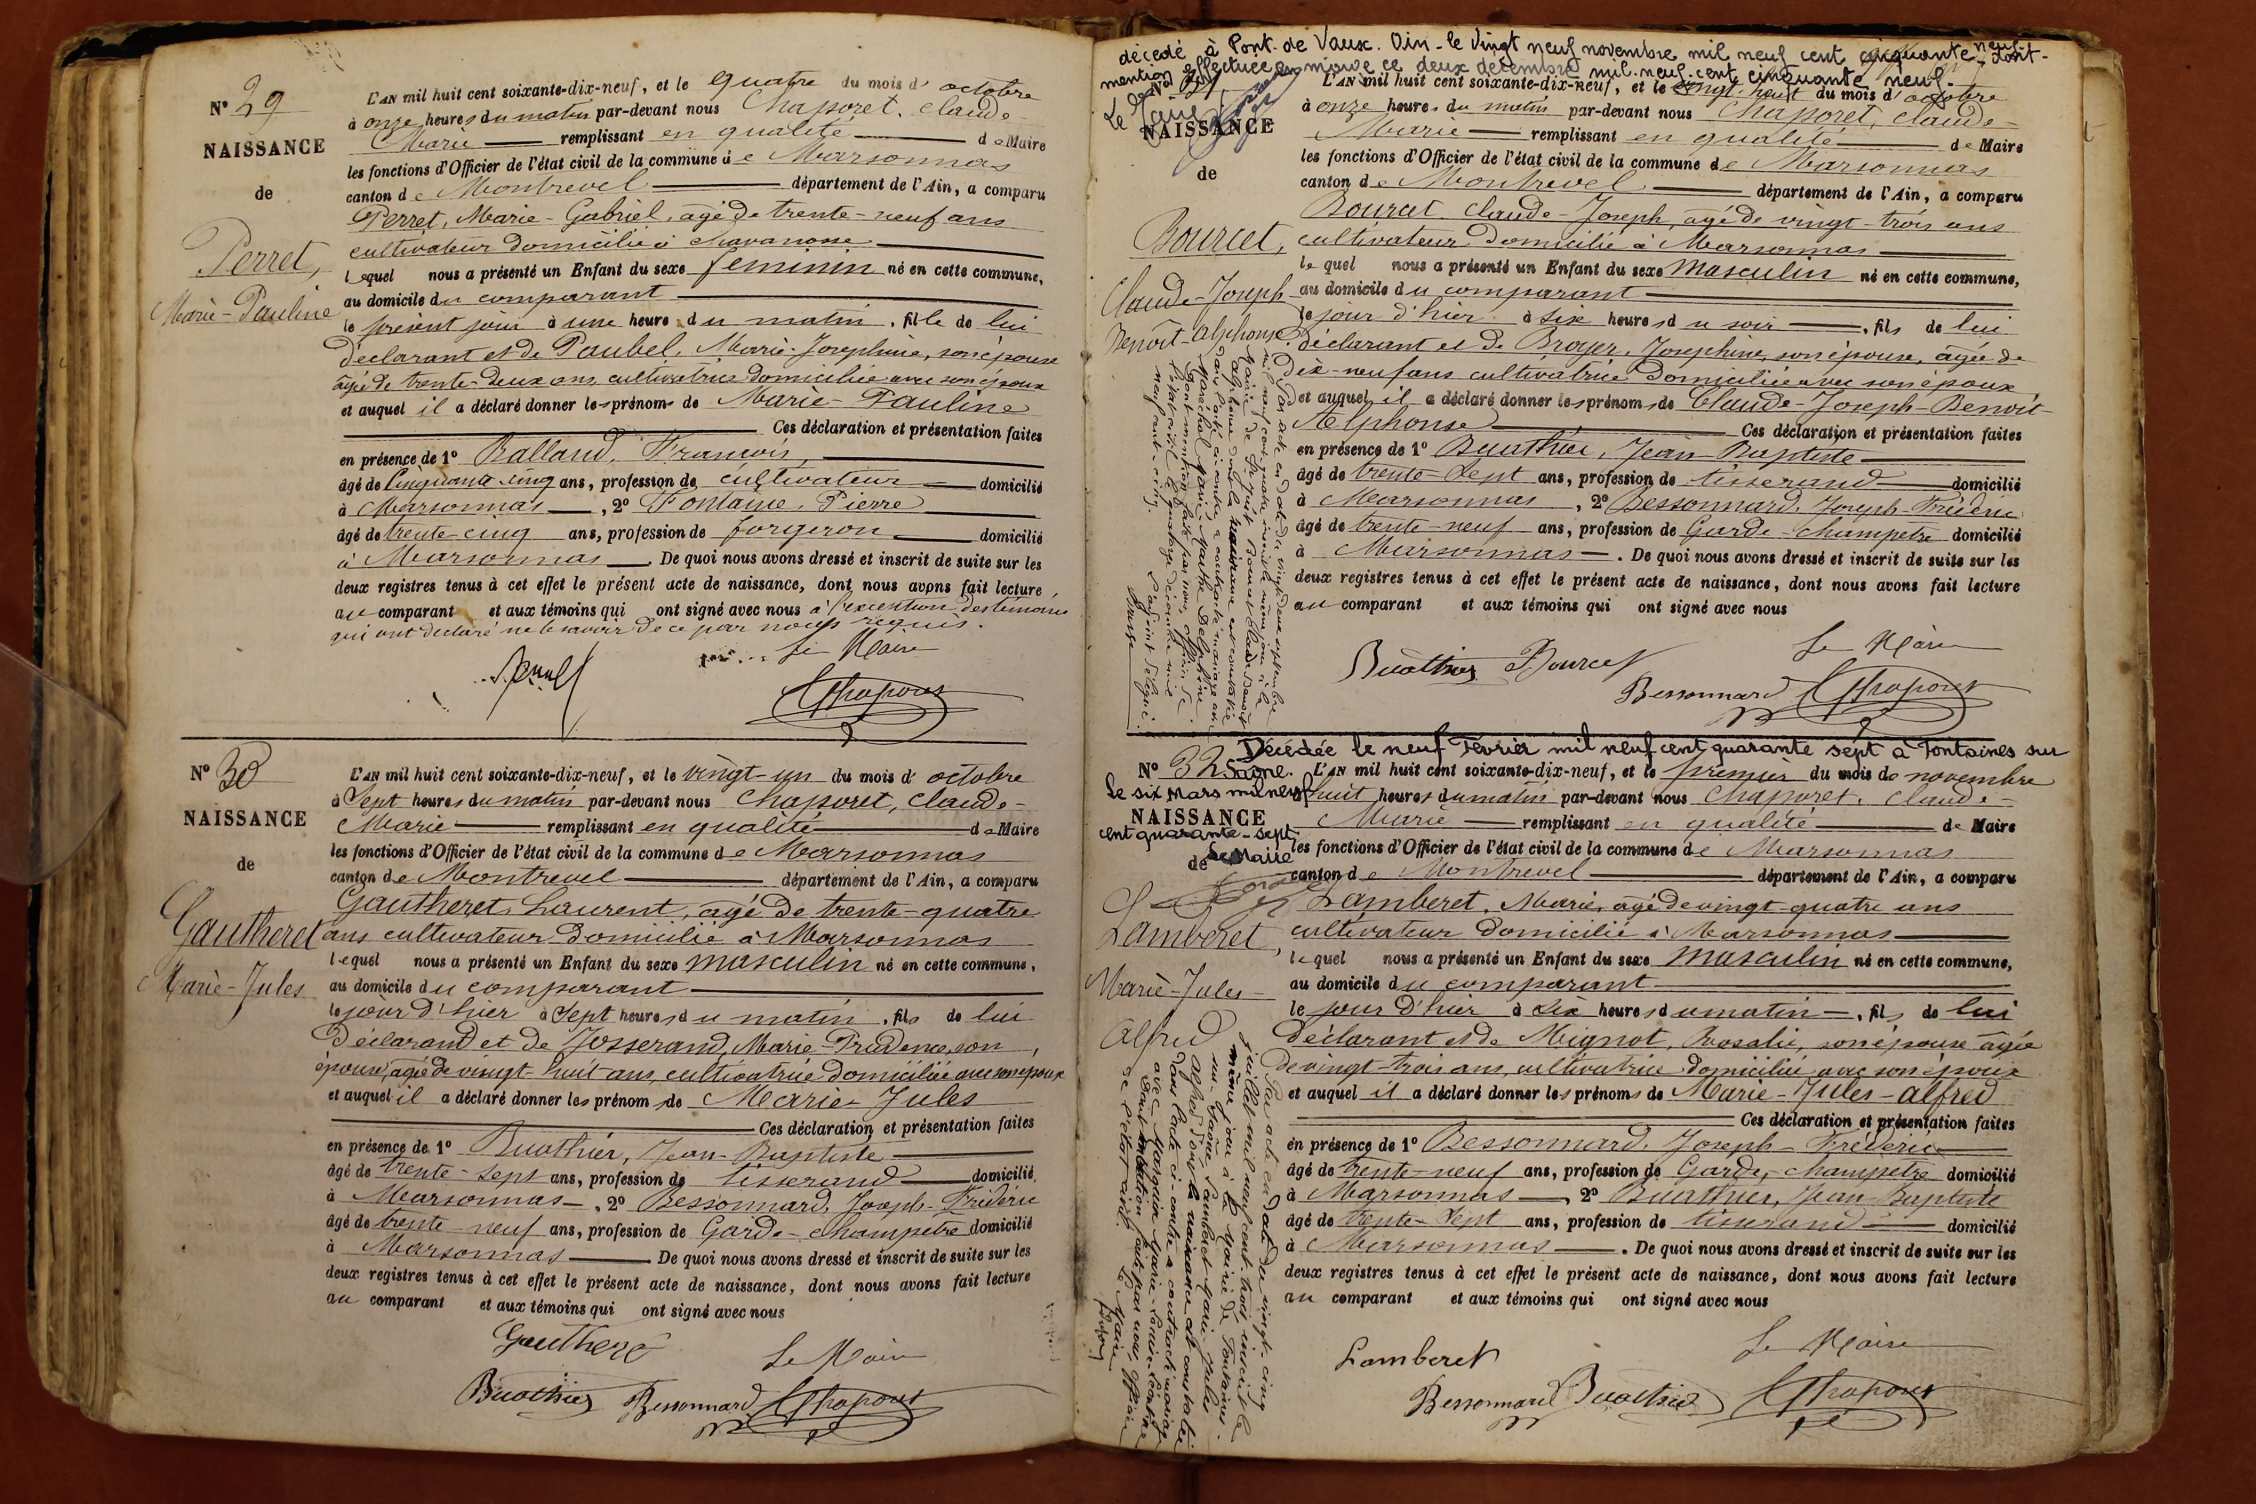 N° 29
NAISSANCE
de
Perret,
Marie-Pauline
L'AN mil huit cent soixante-dix-neuf, et le quatre du mois d' octobre
à onze heures du matin par-devant nous Chaporet, Claude-
Marie remplissant en qualité de Maire
les fonctions d'Officier de l'état civil de la commune de Marsonnas
canton de Montrevel département de l'Ain, a comparu
Perret, Marie-Gabriel, agé de trente-neuf ans
cultivateur domicilié à
lequel nous a présenté un Enfant du sexe féminin né en cette commune,
au domicile du comparant
le présent jour à une heure du matin, fille de lui
déclarant et de Paubel, Marie-Josephine, son épouse
agée de trente-deux ans, cultivatrice domiciliée avec son époux
et auquel il a déclaré donner les prénoms de Marie-Pauline
Ces déclaration et présentation faites
en présence de 1° Ralland, François,
âgé de Cinquante cinq ans, profession de cultivateur domicilié
à Marsonnas, 2° Fontaine, Pierre
âgé de trente-cinq ans, profession de forgeron domicilié
à Marsonnas. De quoi nous avons dressé et inscrit de suite sur les
deux registres tenus à cet effet le présent acte de naissance, dont nous avons fait lecture
au comparant et aux témoins qui ont signé avec nous à l'exception des témoins
qui ont déclaré ne le savoir de ce par nous requis.
Le Maire
Chaporet
N° 30
NAISSANCE
de
Gautheret
Marie-Jules
L'AN mil huit cent soixante-dix-neuf, et le vingt-un du mois d' octobre
à Sept heures du matin par-devant nous Chaporet, Claude-
Marie remplissant en qualité de Maire
les fonctions d'Officier de l'état civil de la commune de Marsonnas
canton de Montrevel département de l'Ain, a comparu
Gautheret, Laurent, agé de trente-quatre
ans cultivateur domicilié à Marsonnas
lequel nous a présenté un Enfant du sexe masculin né en cette commune,
au domicile du comparant
le jour d'hier à Sept heures du matin, fils de lui
Déclarant et de Josserand, Marie-Prudence, son
épouse, agée de vingt-huit ans, cultivatrice domiciliée avec son époux
et auquel il a déclaré donner les prénoms de Marie-Jules
Ces déclaration et présentation faites
en présence de 1° Buathier, Jean-Baptiste
âgé de trente-sept ans, profession de tisserand domicilié
à Marsonnas, 2° Bessonnard, Joseph-Frédéric
âgé de trente-neuf ans, profession de Garde-champetre domicilié
à Marsonnas. De quoi nous avons dressé et inscrit de suite sur les
deux registres tenus à cet effet le présent acte de naissance, dont nous avons fait lecture
au comparant et aux témoins qui ont signé avec nous
Gautheret
Le Maire
Buathier Bessonnard Chaporet
décédé à Pont-de-Vaux. Ain-le Vingt neuf novembre mil neuf cent cinquante neuf-dont-
mention effectuée en mairie ce deux décembre mil-neuf-cent cinquante neuf-
Le Maire
N° 31
NAISSANCE
de
Bourcet,
Claude-Joseph
Benoît-Alphonse
L'AN mil huit cent soixante-dix-neuf, et le vingt-huit du mois d' octobre
à onze heures du matin par-devant nous Chaporet, Claude-
Marie remplissant en qualité de Maire
les fonctions d'Officier de l'état civil de la commune de Marsonnas
canton de Montrevel département de l'Ain, a comparu
Bourcet Claude-Joseph, agé de vingt-trois ans
cultivateur domicilié à Marsonnas
lequel nous a présenté un Enfant du sexe Masculin né en cette commune,
au domicile du comparant
le jour d'hier à Six heures du soir, fils de lui
déclarant et de Broyer, Josephine, son épouse, agée de
dix-neuf ans cultivatrice domiciliée avec son époux
et auquel il a déclaré donner les prénoms de Claude-Joseph-Benoît-
Alphonse Ces déclaration et présentation faites
en présence de 1° Buathier, Jean-Baptiste
âgé de trente-Sept ans, profession de tisserand domicilié
à Marsonnas, 2° Bessonnard, Joseph-Frédéric
âgé de trente-neuf ans, profession de Garde-champetre domicilié
à Marsonnas. De quoi nous avons dressé et inscrit de suite sur les
deux registres tenus à cet effet le présent acte de naissance, dont nous avons fait lecture
au comparant et aux témoins qui ont signé avec nous
Le Maire
Buathier Bourcet
Bessonnard Chaporet
Par acte en date du vingt-deux septembre
mil neuf cent quatre inscrit le même jour à la
mairie de
Alphonse dont la naissance est constatée
dans l'acte ci-contre a contracté mariage avec
Maréchal Marie Marthe Delphine
dont mention faite par nous, officier de
l'état civil le quatorze décembre mil
neuf cent cinq.
L'adjoint délégué
Décédée le neuf Février mil neuf cent quarante sept à Fontaines sur
Saône.
Le six Mars mil neuf
cent quarante-sept
Le Maire
N° 32
NAISSANCE
de
Lamberet,
Marie-Jules-
Alfred
L'AN mil huit cent soixante-dix-neuf, et le premier du mois de novembre
à huit heures du matin par-devant nous Chaporet, Claude-
Marie remplissant en qualité de Maire
les fonctions d'Officier de l'état civil de la commune de Marsonnas
canton de Montrevel département de l'Ain, a comparu
Lamberet, Marie, agé de vingt-quatre ans
cultivateur domicilié à Marsonnas
lequel nous a présenté un Enfant du sexe Masculin né en cette commune,
au domicile du comparant
le jour d'hier à Six heures du matin, fils de lui
déclarant et de Mignot, Rosalie, son épouse agée
de vingt-trois ans, cultivatrice domiciliée avec son époux
et auquel il a déclaré donner les prénoms de Marie-Jules-Alfred
Ces déclaration et présentation faites
en présence de 1° Bessonnard, Joseph-Frédéric
âgé de trente-neuf ans, profession de Garde-champetre domicilié
à Marsonnas, 2° Buathier, Jean-Baptiste
âgé de trente-Sept ans, profession de tisserand domicilié
à Marsonnas. De quoi nous avons dressé et inscrit de suite sur les
deux registres tenus à cet effet le présent acte de naissance, dont nous avons fait lecture
au comparant et aux témoins qui ont signé avec nous
Le Maire
Lamberet
Bessonnard Buathier Chaporet
Par acte en date du vingt-cinq
juillet mil neuf cent trois inscrit le
même jour à la mairie de Fontaines
sur Saône, Lamberet Marie Jules
Alfred dont la naissance est constatée
dans l'acte ci-contre a contracté mariage
avec
Dont mention faite par nous, officier
de l'état civil. Le Maire